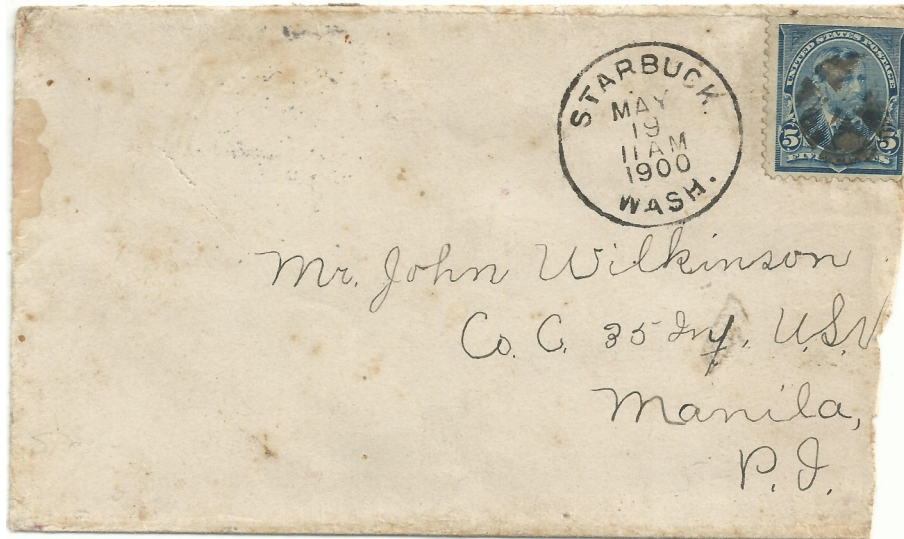 STARBUCK.
MAY
19
11 AM
1900
WASH.
UNITED STATES POSTAGE
5 5
Mr. John Wilkinson
Co. C. 35 Inf. U.S.V
Manila,
P.I.